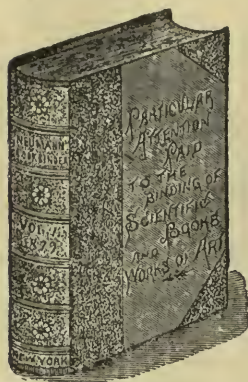 NEUMANN
BOOKBINDER
VOL.
1879
NEW-YORK
PARTICULAR
ATTENTION
PAID
TO THE
BINDING OF
SCIENTIFIC
BOOKS
AND
WORKS OF ART